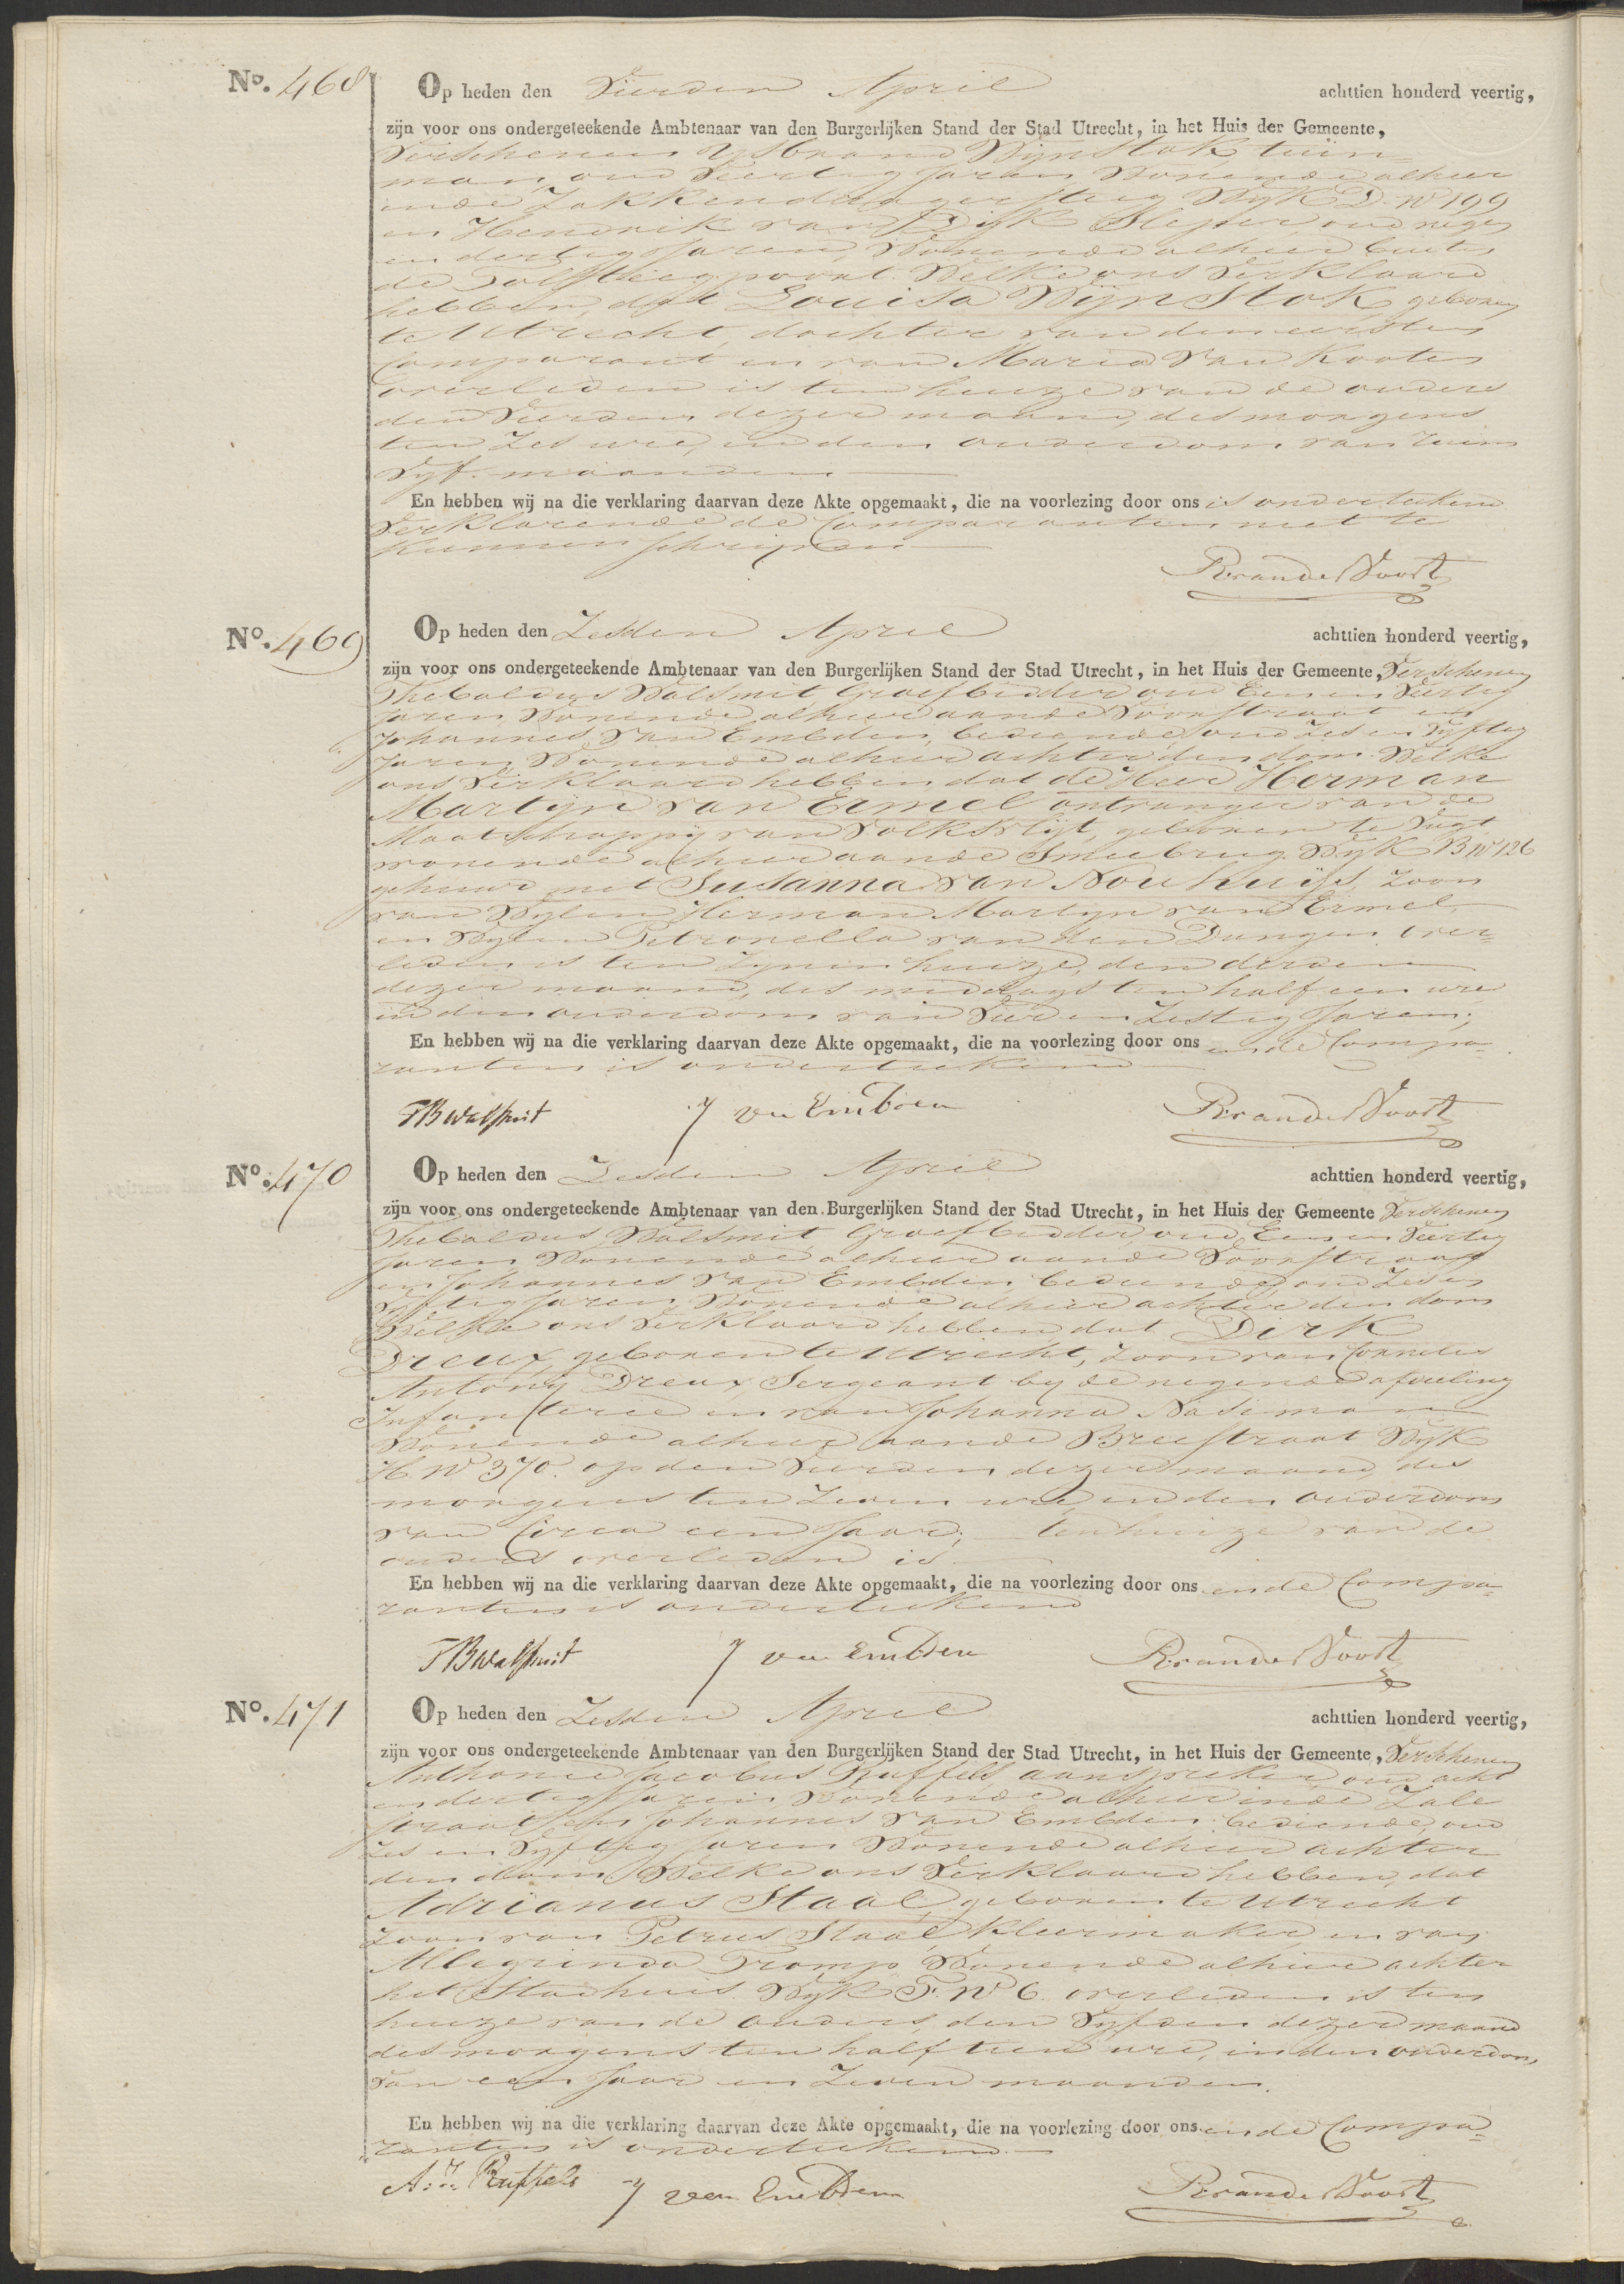 No. 468
Op heden den Vierden April achttien honderd veertig,
zijn voor ons ondergeteekende Ambtenaar van den Burgerlijken Stand der Stad Utrecht, in het Huis der Gemeente,
Verschenen Ysbrand Wijnstok tuin=
man, oud Veertig Jaren Wonende alhier
inde Zakkendragersteeg Wyk D. No 199
en Hendrik van Dijk Sleper oud negen
en dertig Jaren, Wonende alhier buiten
de Tolsteegpoort. Welke ons Verklaard
hebben, dat Louisa Wijnstok geboren
te Utrecht, dochter van den eersten
Comparant en van Maria van Kooten
overleden is ten huize van de ouders
den Vierden dezer maand, des morgens
ten Zes ure, in den ouderdom van ruim
Vyf maanden
En hebben wij na die verklaring daarvan deze Akte opgemaakt, die na voorlezing door ons is onderteekend
Verklarende de Comparanten niet te
kunnen schrijven
R van der Voort
No. 469
Op heden den Zesden April achttien honderd veertig,
zijn voor ons ondergeteekende Ambtenaar van den Burgerlijken Stand der Stad Utrecht, in het Huis der Gemeente, Verschenen
Thebaldus Walsmit, Groefbidder oud Een en Veertig
Jaren, Wonende alhier aande Voorstraat en
Johannes van Embden, bediende, oud Zes en Vyftig
Jaren, Wonende alhier achter den dom. Welke
ons Verklaard hebben dat de Heer Herman
Martijn van Ermel ontvanger van de
Maatschappij van Volksvlijt, geboren te Vugt
wonende alhier aande Smeebrug. Wyk B No 126
gehuwd met Susanna van Nouhuijs, Zoon
van Wylen Herman Martyn van Ermel
en Wylen Petronella van den Dungen over=
leden is ten Zynen huize, den derden
dezer maand, des middags ten half een ure
in den ouderdom van Vier en Zestig Jaren;
En hebben wij na die verklaring daarvan deze Akte opgemaakt, die na voorlezing door ons en de Compa=
ranten is onderteekend
TB Walsmit J van Embden R van der Voort
No. 470
Op heden den Zesden April achttien honderd veertig,
zijn voor ons ondergeteekende Ambtenaar van den Burgerlijken Stand der Stad Utrecht, in het Huis der Gemeente Verschenen
Thebaldus Walsmit Groefbidder oud Een en Veertig
Jaren Wonende alhier aande Voorstraat
en Johannes van Embden, bediende, oud Zes en
Vyftig Jaren, Wonende alhier achter den dom
Welke ons Verklaard hebben, dat Dirk
Dreux, geboren te Utrecht, Zoon van Cornelis
Antony Dreux, Sergeant by de negende afdeeling
Infanterie en van Johanna
Wonende alhier aande Breestraat Wyk
H No 370. op den Vierden dezer maand, des
morgens ten Zeven ure, in den ouderdom
van Circa een Jaar; ten huize van de
ouders overleden is
En hebben wij na die verklaring daarvan deze Akte opgemaakt, die na voorlezing door ons en de Compa=
ranten is onderteekend
TB Walsmit J van Embden R van der Voort
No. 471
Op heden den Zesden April achttien honderd veertig,
zijn voor ons ondergeteekende Ambtenaar van den Burgerlijken Stand der Stad Utrecht, in het Huis der Gemeente, Verschenen
Anthonie Jacobus Ruffels aanspreker, oud acht
en dertig Jaren Wonende alhier inde Zale
straat, en Johannes van Embden, bediende, oud
Zes en Vyftig Jaren Wonende alhier achter
den dom, Welke ons Verklaard hebben, dat
Adrianus Staal, geboren te Utrecht
Zoon van Petrus Staal Kleermaker, en van
Allegrinda Tromp Wonende alhier achter
het Stadhuis. Wyk F. No 6. overleden is ten
huize van de ouders, den Vyfden dezer maand
des morgens ten half tien ure, in den ouderdom,
van een Jaar en Zeven maanden.
En hebben wij na die verklaring daarvan deze Akte opgemaakt, die na voorlezing door ons en de Compa=
ranten is onderteekend
A: J: Ruffels J van Embden R van der Voort